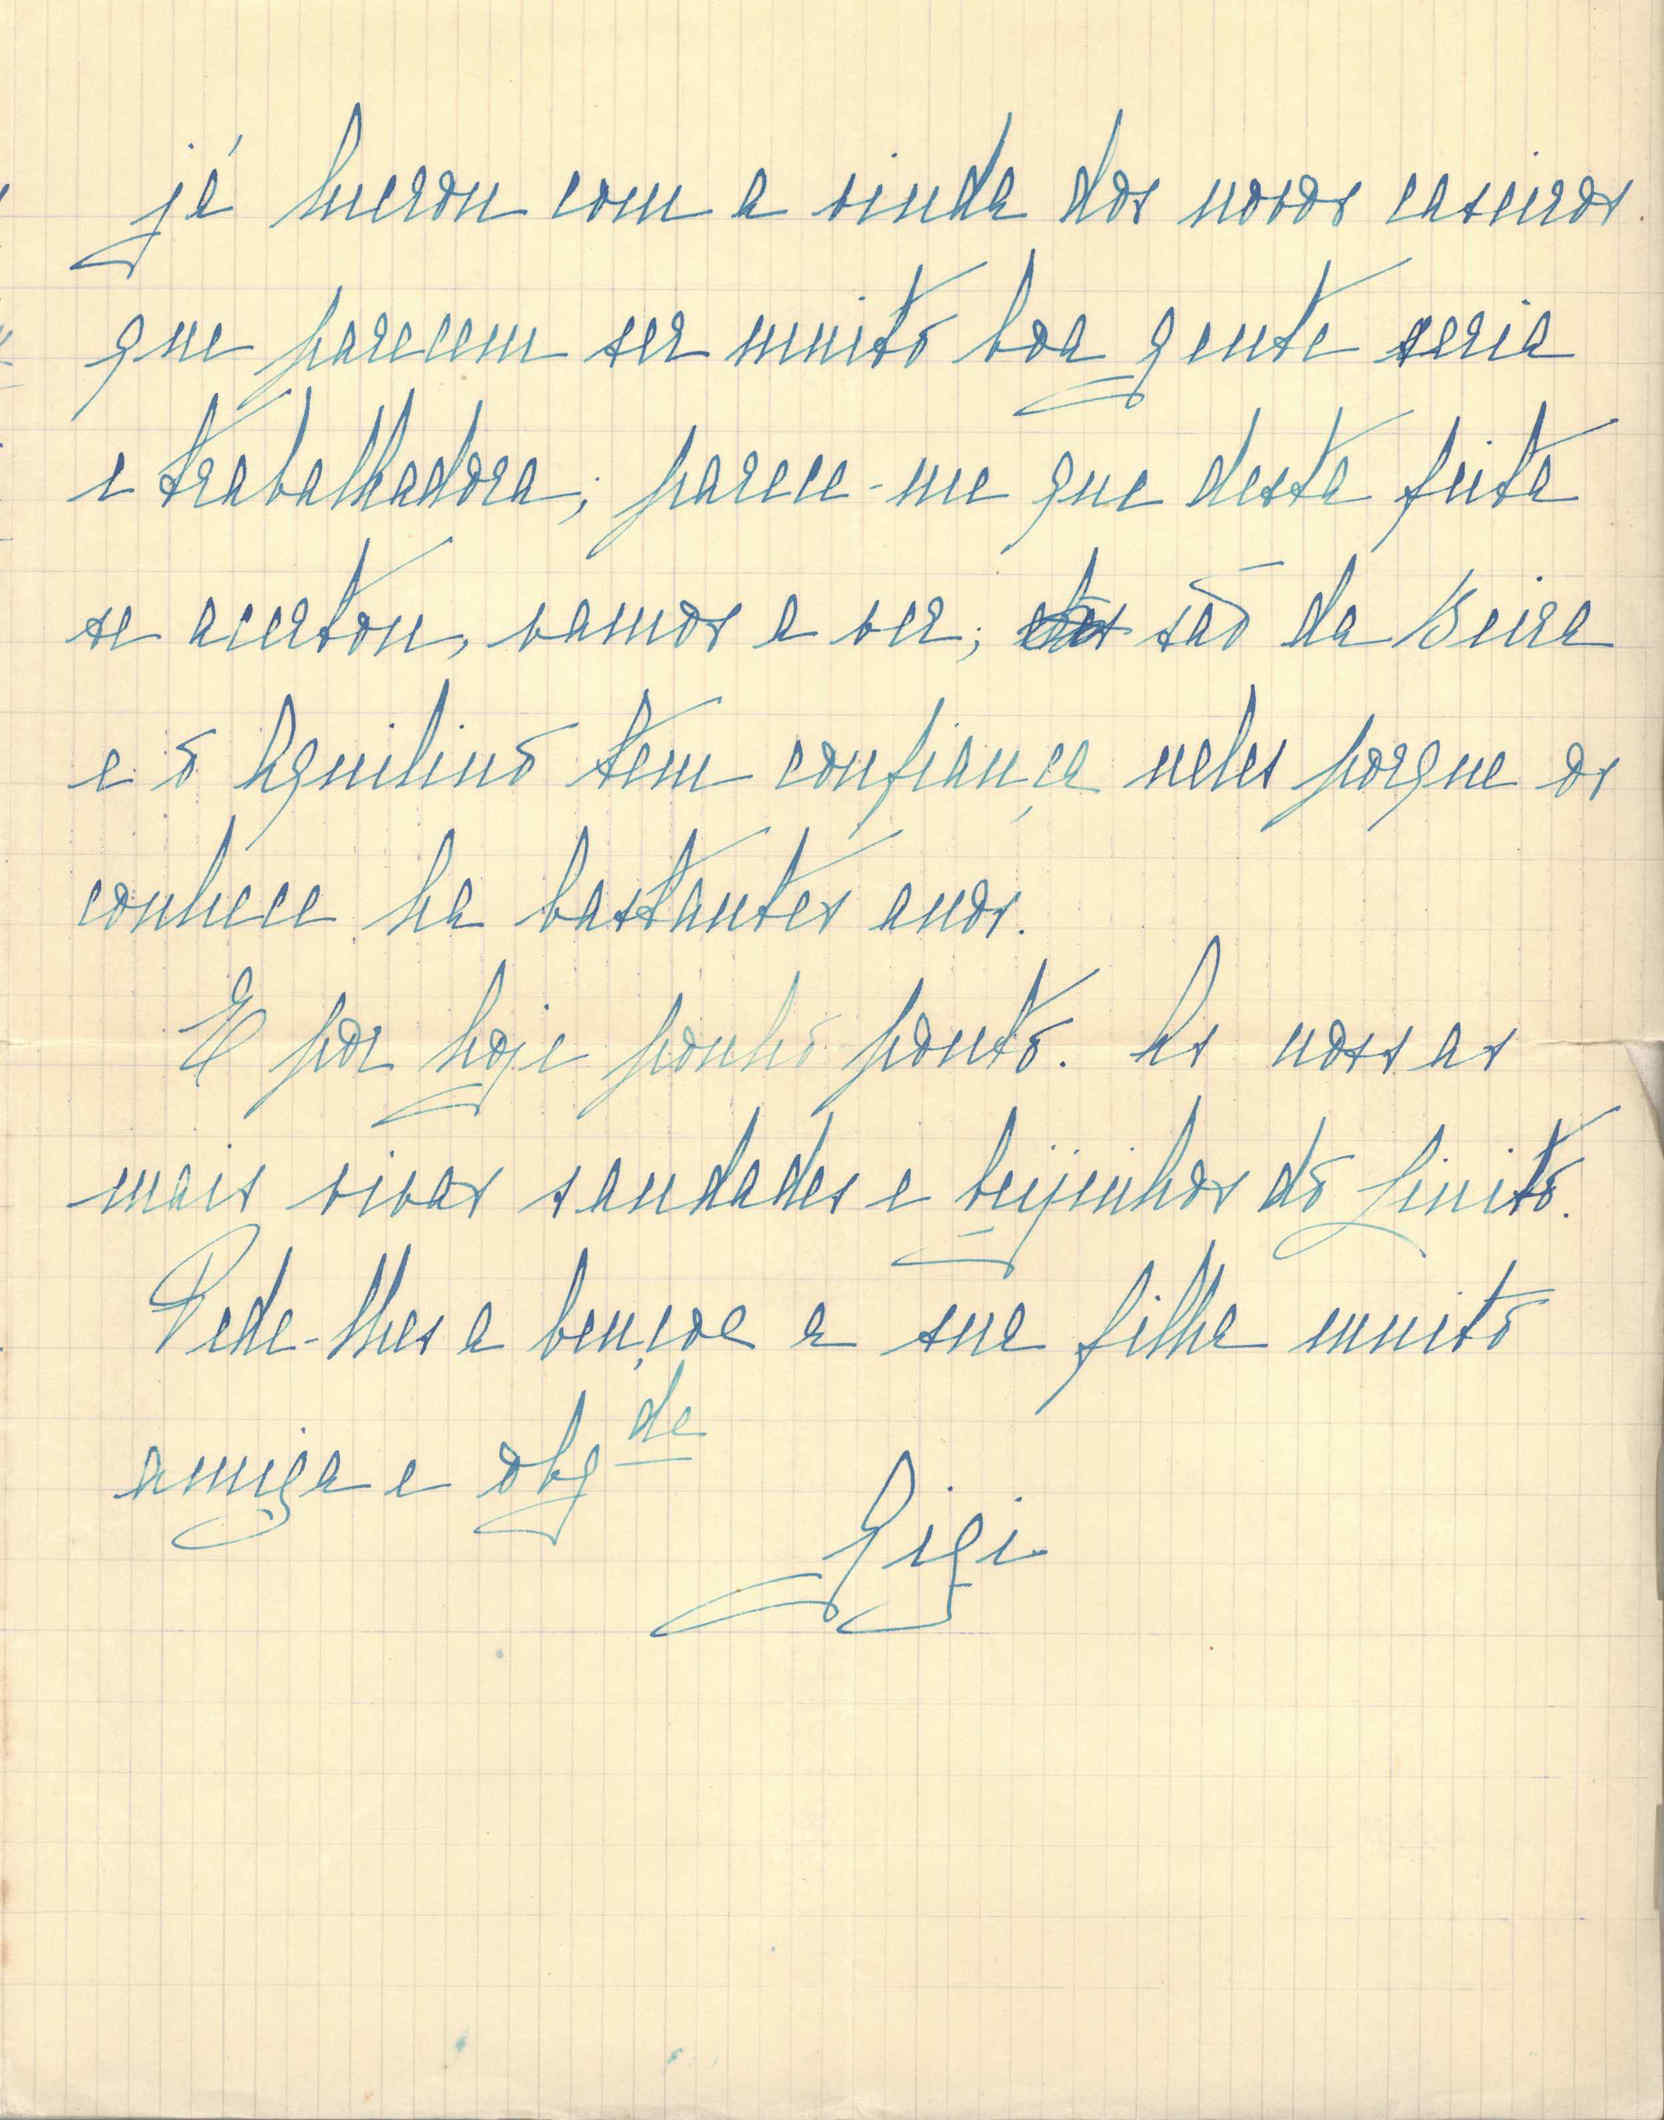 já lucrou com a vinda dos novos caseiros
que parecem ser muito boa gente seria
e trabalhadora; parece-me que desta feita
se acertou, vamos a ver; são da Beira
e o Aquilino tem confiança neles porque os
conhece ha bastantes anos.
E por hoje ponho ponto. As nossas
mais vivas saudades e beijinhos do Jinito.
Pede-lhes a bençoe a sua filha muito
amiga e obg de
Gigi